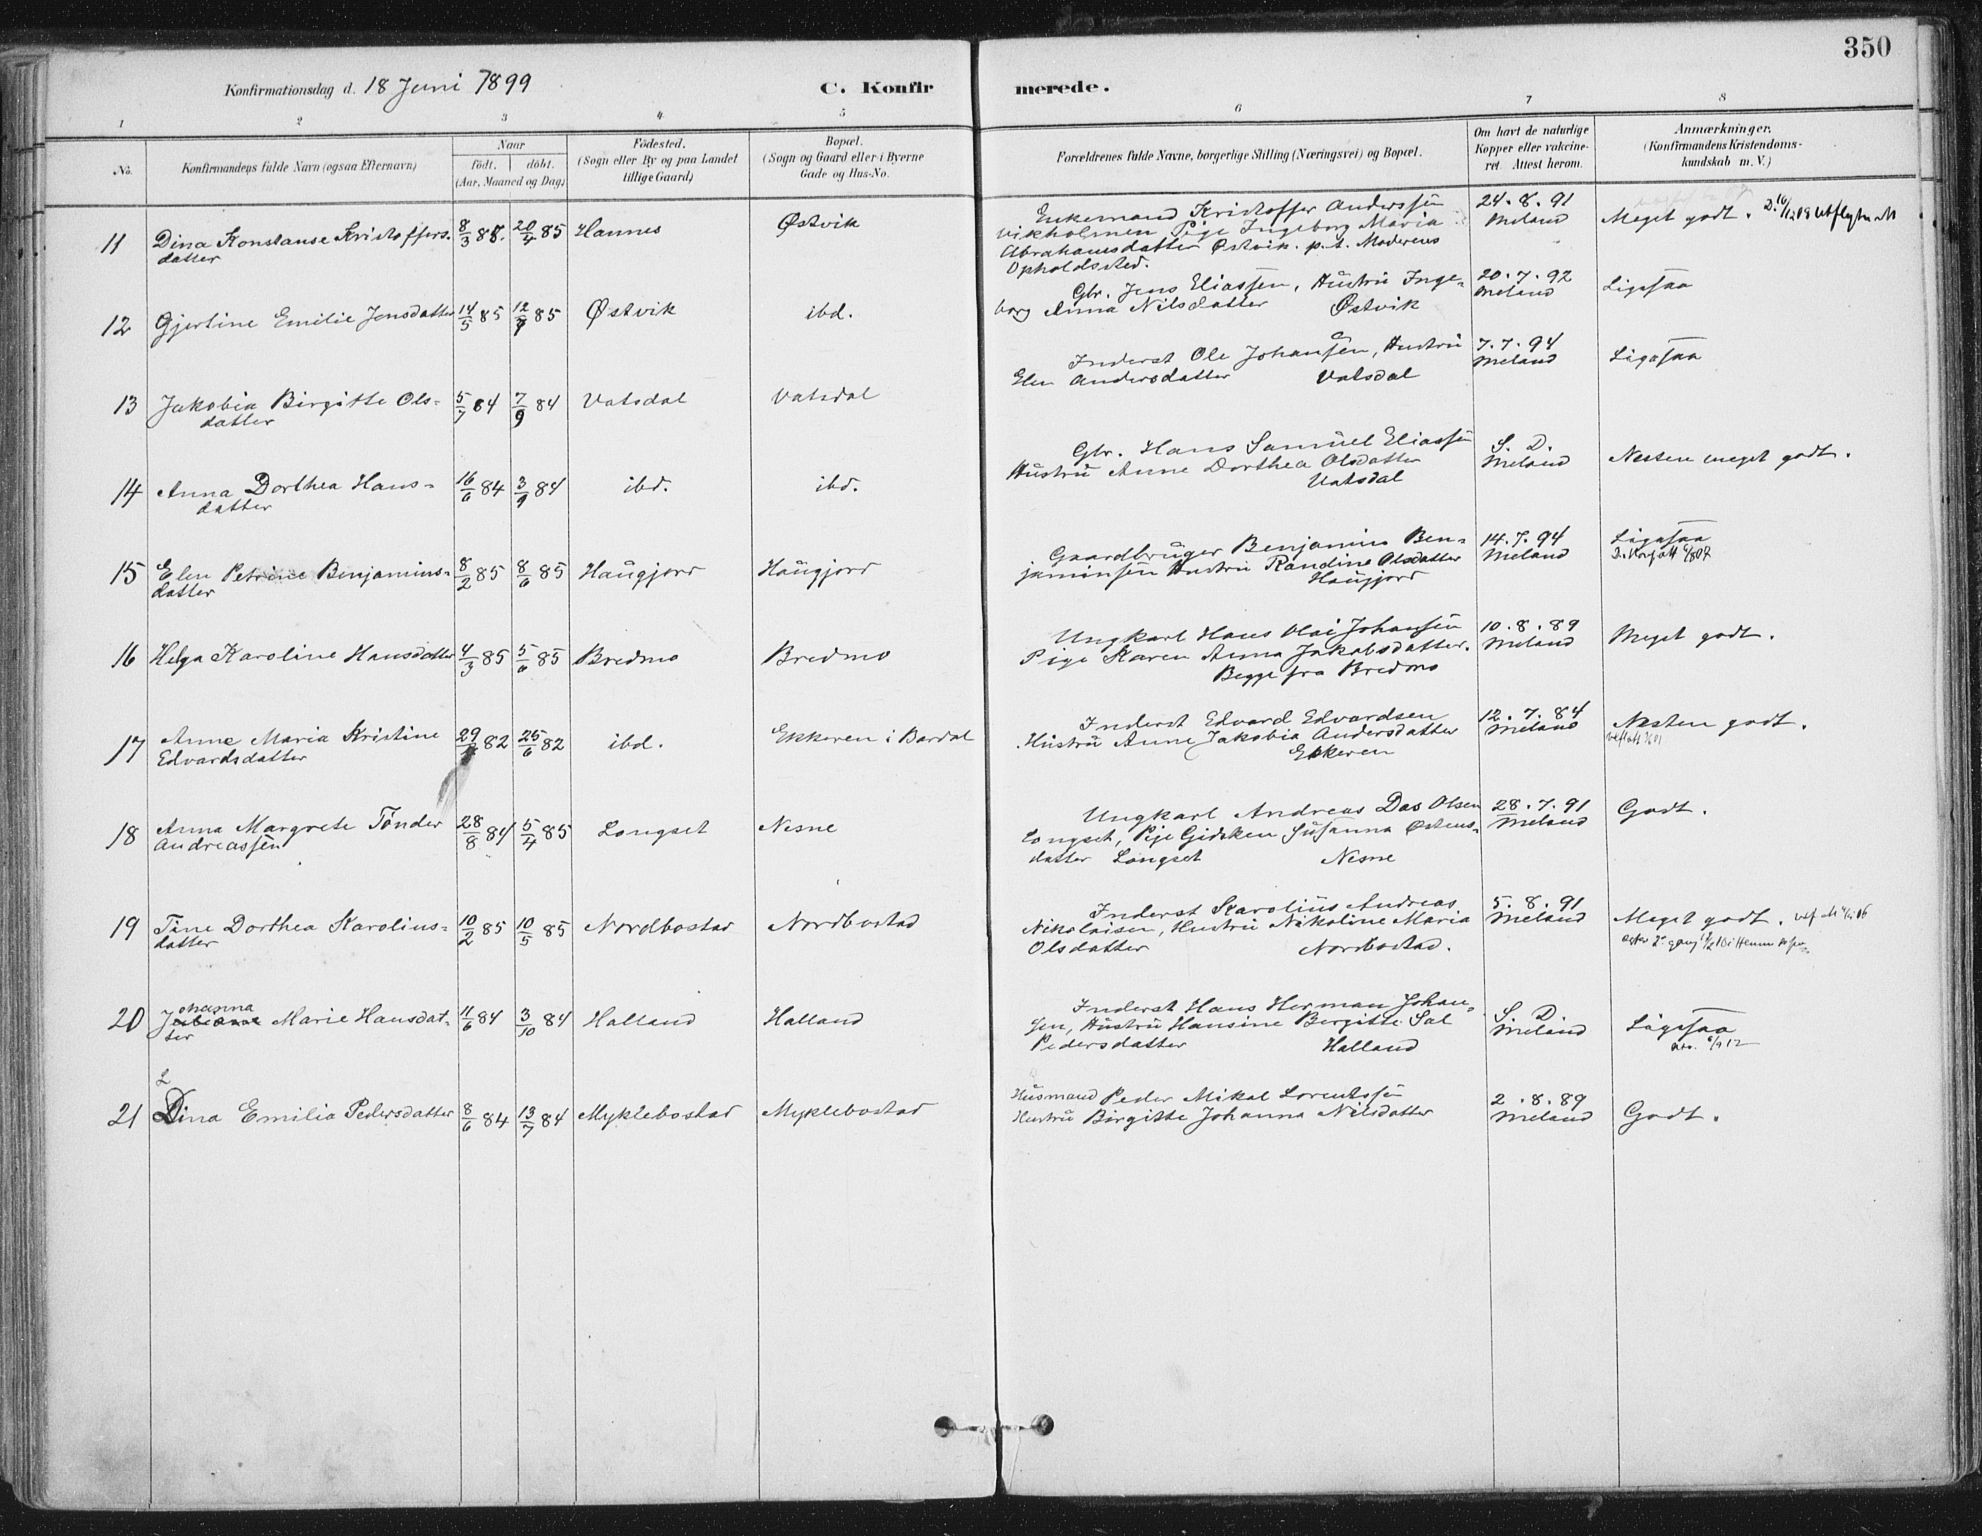 350
Konfirmationsdag d. 18 Juni 1899
C. Konfirmerede.
1 2 3 4 5 6 7 8
No.
Konfirmandens fulde Navn (ogsaa Efternavn)
Naar
födt. döbt.
(Aar, Maaned og Dag)
Födested.
(Sogn eller By og paa Landet
tillige Gaard)
Bopæl.
(Sogn og Gaard eller i Byerne
Gade og Hus-No.
Forældrenes fulde Navne, borgerlige Stilling (Næringsvei) og Bopæl.
Om havt de naturlige
Kopper eller vakcine-
ret. Attest herom.
Anmærkninger.
(Konfirmandens Kristendoms-
kundskab m. V.)
11 Dina Konstanse Kristoffers-
datter
8/3 85. 20/4 85 Hannes Østvik
Enkemand Kristoffer Anderssen
Vikholmen Pige Ingeborg Maria
Abrahamsdatter Østvik. p.t. Moderens
Opholdssted.
24.8.91
Meland
Meget godt.
12 Gjertine Emilie Jensdatter 14/5 85 12/7 85 Østvik ibd.
Gbr. Jens Eliassen, Hustru Inge-
borg Anna Nilsdatter Østvik
20.7.92
Meland
Ligesaa
13 Jakobia Birgitte Ols-
datter
5/7 84 7/9 84 Vatsdal Vatsdal
Inderst Ole Johansen, Hustru
Elen Andersdatter Vatsdal
7.7.94
Meland
Ligesaa
14 Anna Dorthea Hans-
datter
16/6 84 3/9 84 ibd. ibd.
Gbr. Hans Samuel Eliassen
Hustru Anne Dorthea Olsdatter
Vatsdal
S. D.
Meland
Nesten meget godt.
15 Elen Petrine Benjamins-
datter
8/2 85 8/6 85 Haugjord Haugjord
Gaardbruger Benjamin Ben-
jaminsen Hustru Randine Olsdatter
Haugjord
14.7.94
Meland
Ligesaa
16 Helga Karoline Hansdatter 4/3 85 5/6 85 Bredmo Bredmo
Ungkarl Hans Olai Johansen
Pige Karen Anna Jakobsdatter.
Begge fra Bredmo
10.8.89
Meland
Meget godt.
17 Anne Maria Kristine
Edvardsdatter
82 25/6 82 ibd. Ekkeren i Bardal
Inderst Edvard Edvardsen
Hustru Anne Jakobia Andersdatter
Ekkeren
12.7.84
Meland
Nesten godt.
18 Anna Margrete Tønder
Andreassen
28/8 84 5/4 85 Longset Nesne
Ungkarl Andreas Das Olsen
Longset, Pige Gidsken Susanna Østens-
datter Longset Nesne
28.7.91
Meland
Godt.
19 Tine Dorthea Karolius-
datter
10/2 85 10/5 85 Nordbostad Nordbostad
Inderst Karolius Andreas
Nikolaisen, Hustru Nikoline Maria
Olsdatter Nordbostad.
5.8.91
Meland
Meget godt.
20 Johanna Marie Hansdat-
ter
11/6 84 3/10 84 Halland Halland
Inderst Hans Herman Johan-
sen, Hustru Hansine Bergitte Sal
Pedersdatter Halland
S. D.
Meland
Ligesaa
L
21 Dina Emilia Pedersdatter 8/6 84 13/7 84 Myklebostad Myklebostad
Husmand Peder Mikal Lorentssen
Hustru Birgitte Johanna Nilsdatter
2.8.89
Meland
Godt.